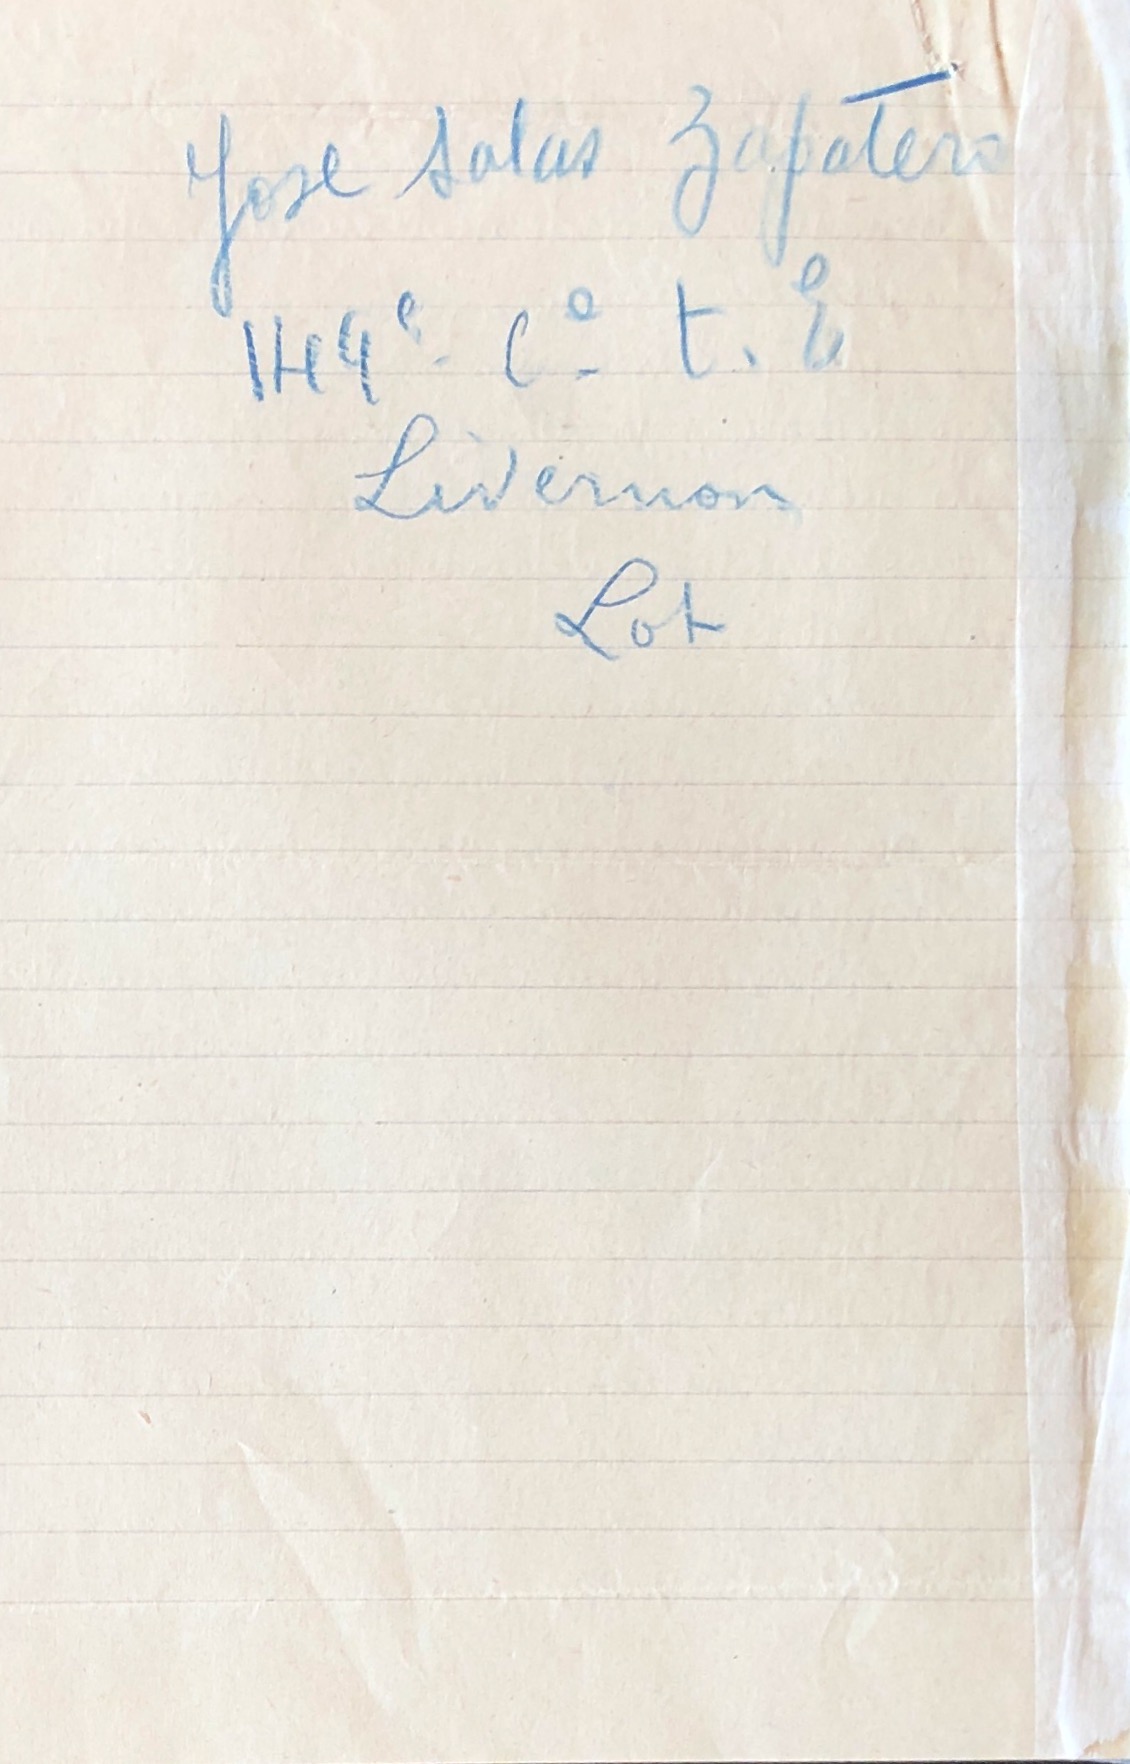 Jose Salas Zapatero
149e. Ce. t. E
Livernon
Lot